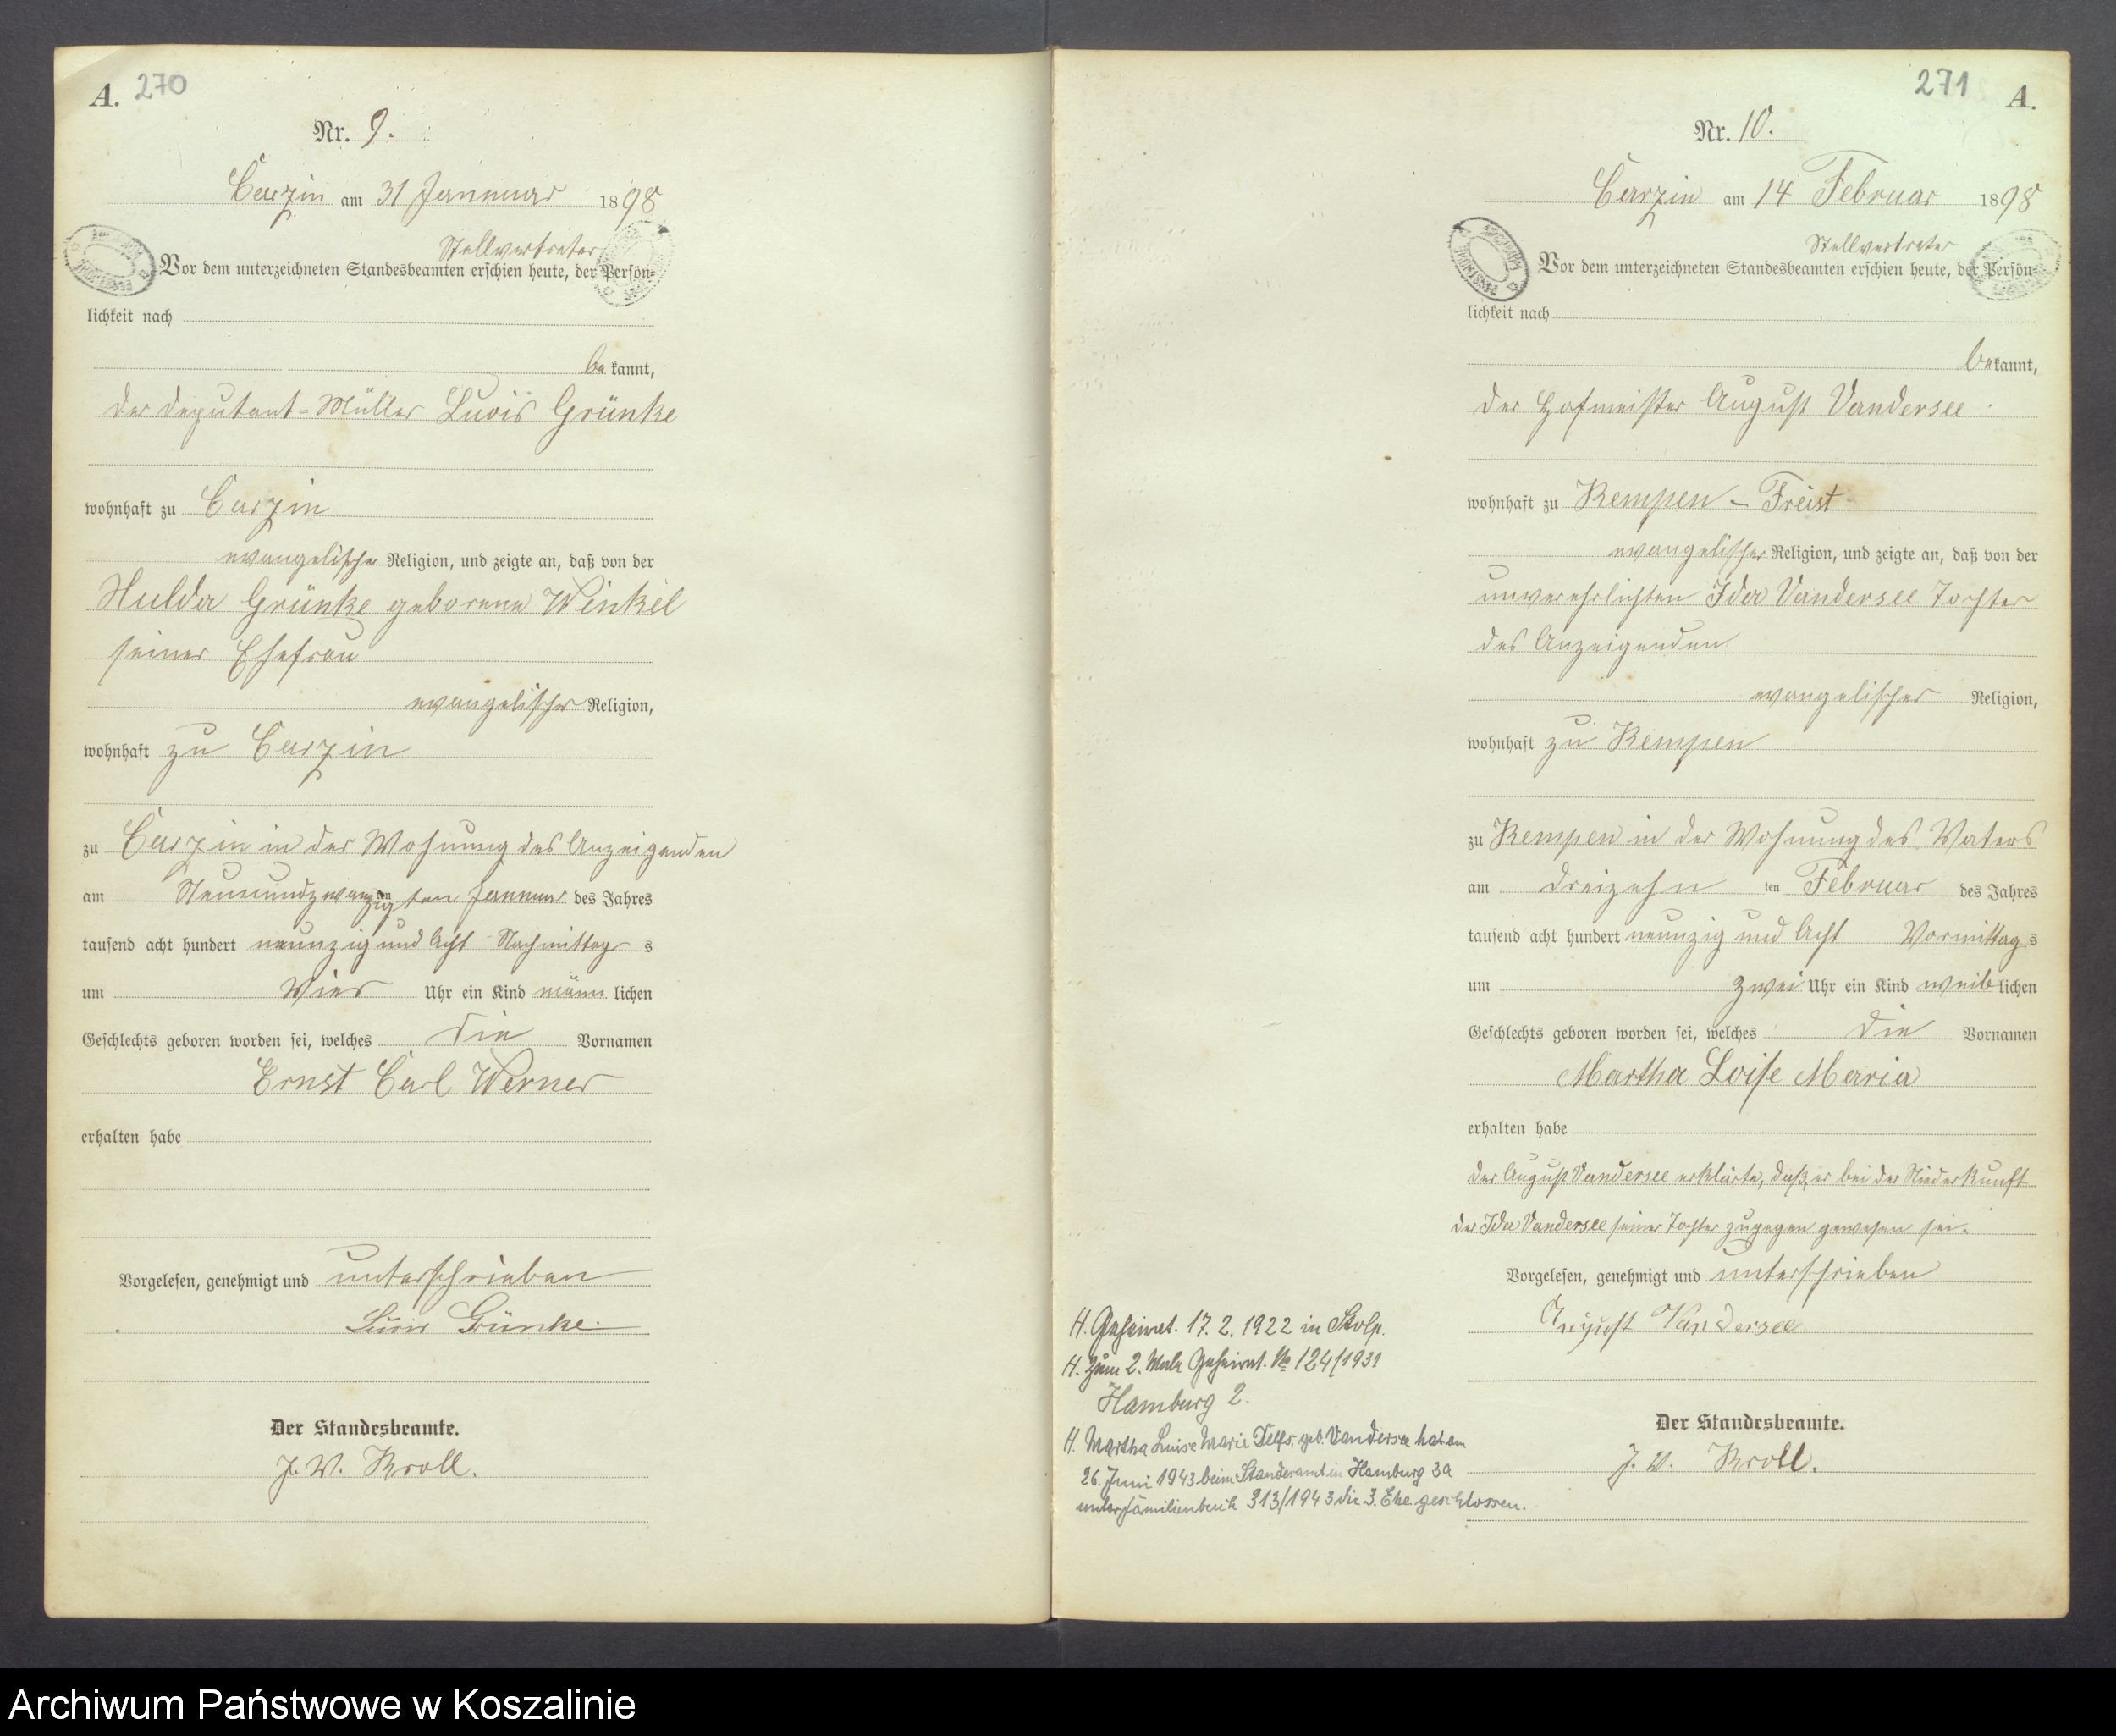 A. 270
Nr. 9.
Carzin am 31 Januar 1898
Stellvertreter
Vor dem unterzeichneten Standesbeamten erschien heute, der Persön-
lichkeit nach
be kannt,
der Deputant-Müller Luois Grünke
wohnhaft zu Carzin
evangelischer Religion, und zeigte an, daß von der
Hulda Grünke geborene Winkel
seiner Ehefrau
evangelischer Religion,
wohnhaft zu Carzin
zu Carzin in der Wohnung des Anzeigenden
am Neunundzwanzigsten Januar des Jahres
tausend acht hundert neunzig und Acht Nachmittag s
um Vier Uhr ein Kind männ lichen
Geschlechts geboren worden sei, welches die Vornamen
Ernst Carl Werner
erhalten habe
Vorgelesen, genehmigt und unterschrieben
Luois Grünke.
Der Standesbeamte.
J. W. Kroll.
271 A.
Nr. 10.
Carzin am 14 Februar 1898
Stellvertreter
Vor dem unterzeichneten Standesbeamten erschien heute, der Persön-
lichkeit nach
bekannt,
der Hofmeister August Vandersee
wohnhaft zu Kempen – Freist
evangelischer Religion, und zeigte an, daß von der
unverehelichten Ida Vandersee Tochter
des Anzeigenden
evangelischer Religion,
wohnhaft zu Kempen
zu Kempen in der Wohnung des Vaters
am dreizehn ten Februar des Jahres
tausend acht hundert neunzig und Acht Vormittag s
um zwei Uhr ein Kind weib lichen
Geschlechts geboren worden sei, welches die Vornamen
Martha Loise Maria
erhalten habe
Der August Vandersee erklärte, daß, er bei der Niederkunft
der Ida Vandersee seiner Tochter zugegen gewesen sei.
Vorgelesen, genehmigt und unterschrieben
August Vandersee
Der Standesbeamte.
J. W. Kroll.
H. Geheirat. 17. 2. 1922 in Stolp.
H. Zum 2. Male Geheirat. No 124/1931
Hamburg 2.
H. Martha Luise Marie Delfs, geb. Vandersee hat am
26. Juni 1943 beim Standesamt in Hamburg 3a
unter Familienbuch 313/1943 die 3. Ehe geschlossen.
Archiwum Państwowe w Koszalinie